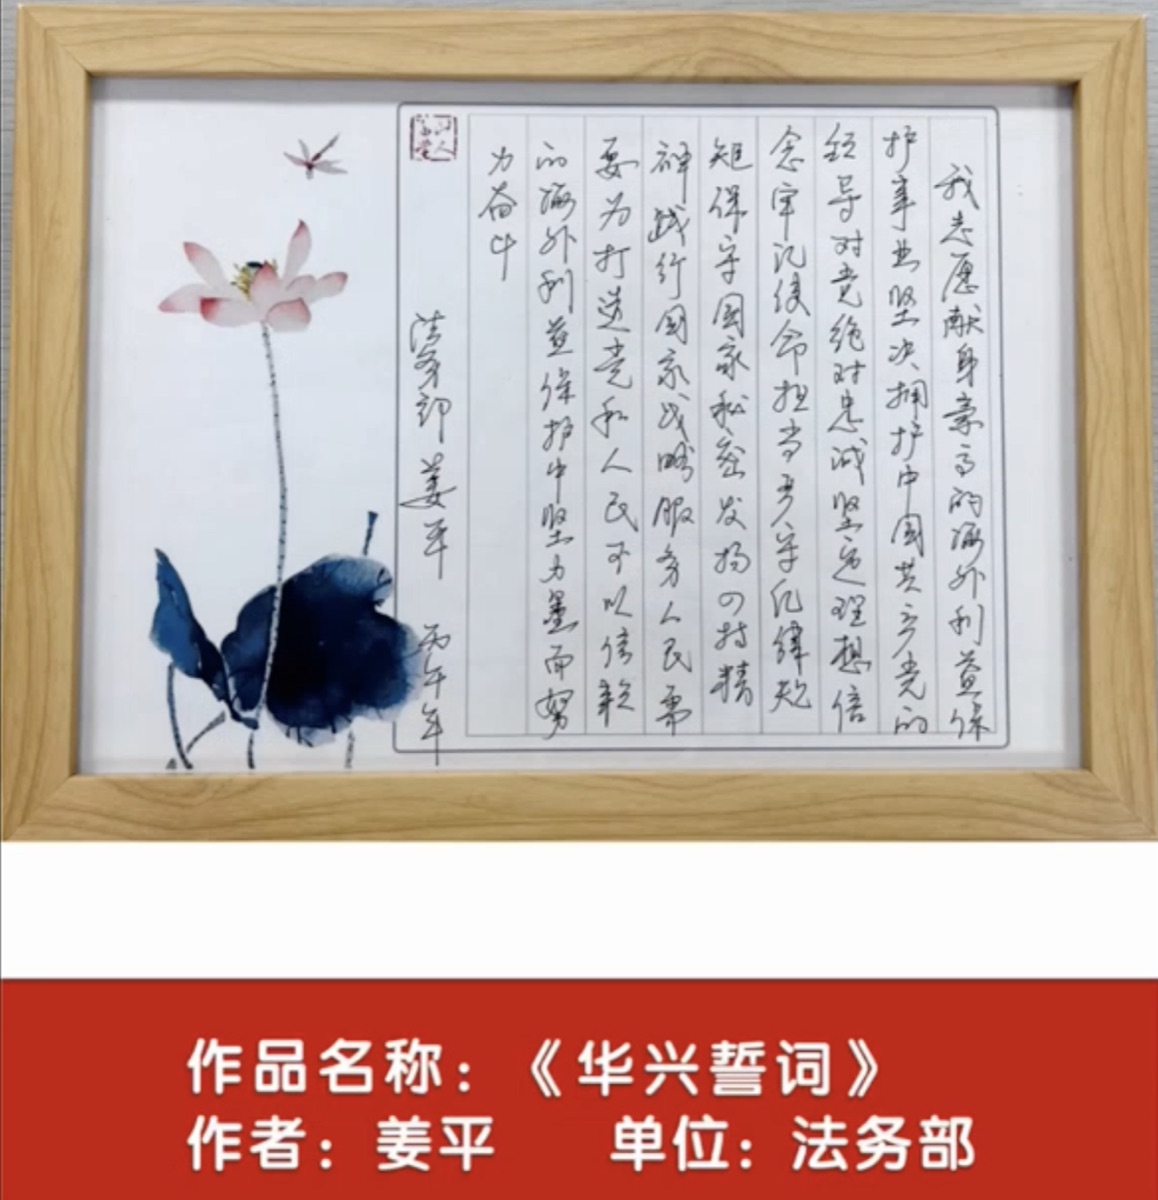 我志愿献身崇高的海外利益保
护事业坚决拥护中国共产党的
领导对党绝对忠诚坚定理想信
念牢记使命担当严守纪律规
矩保守国家秘密发扬四特精
神践行国家战略服务人民需
要为打造党和人民可以信赖
的海外利益保护中坚力量而努
力奋斗
法务部 姜平 丙午年
作品名称：《华兴誓词》
作者：姜平 单位：法务部